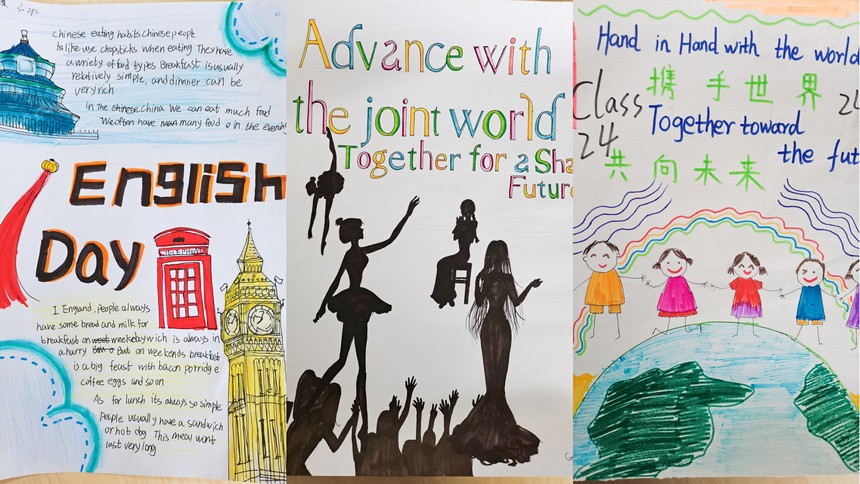 chinese eating habits Chinese people
is like use chopsticks when eating They have
a variety of food types Breakfast is usually
relatively simple, and dinner can be
very rich
In the chinese China We can eat much food
We often have many food in the evening
English
Day
TELEPHONE
I England, people always
have some bread and milk for
breakfast on weekdays which is always in
a hurry But on weekends breakfast
is a big feast with bacon porridge
coffee eggs and so on
As for lunch it's always so simple
People usually have a sandwich
or hot dog This meal wont
last very long
Advance with
the joint world
Together for a Sha
Future
Hand in Hand with the world
携手世界
Class
24
Together toward
the fut
共向未来